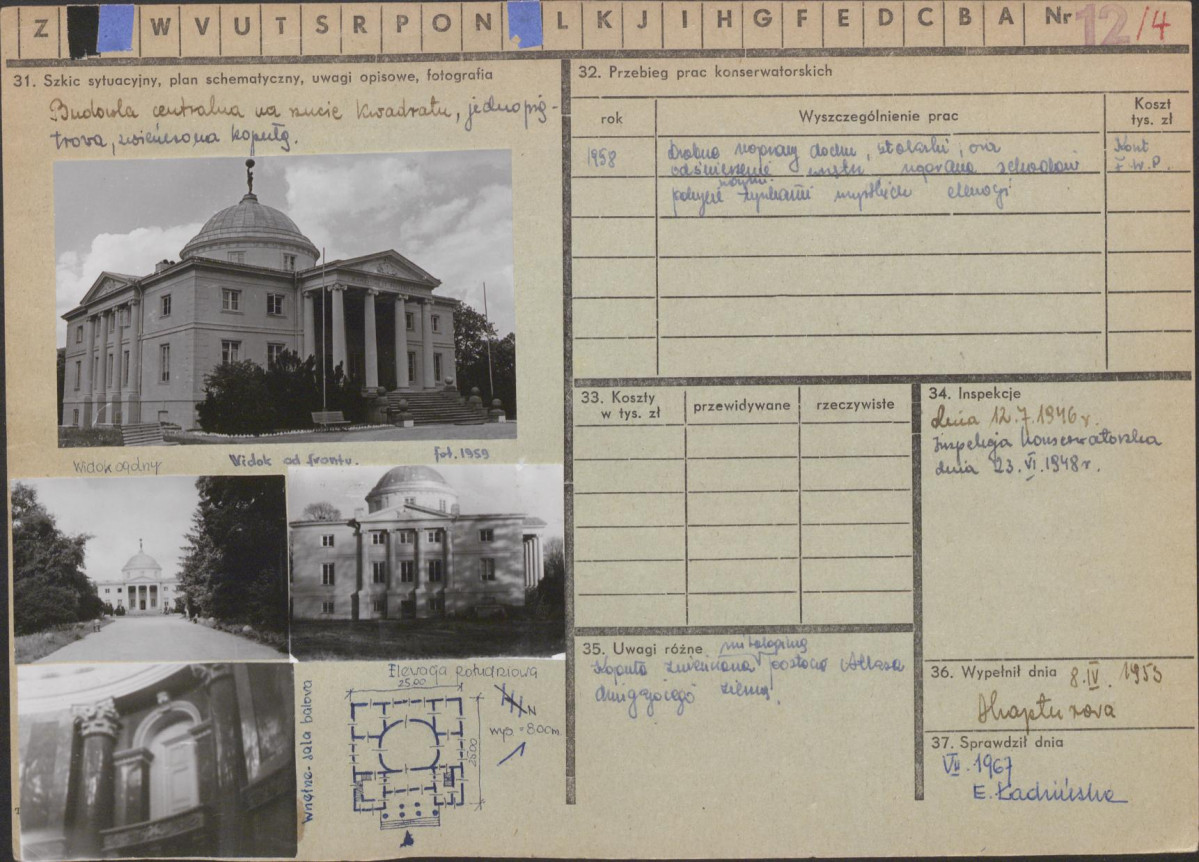 Z W V U T S R P O N L K J I H G F E D C B A Nr 12/4
31. Szkic sytuacyjny, plan schematyczny, uwagi opisowe, fotografia
Budowla centralna na rzucie kwadratu, jednopię-
trowa, zwieńczona kopułą.
Widok ogólny
Widok od frontu.
fot. 1959
Wnętrze - sala balowa
Elewacja południowa
25.00
25.00
N
wys = 800m
32. Przebieg prac konserwatorskich
rok
Wyszczególnienie prac
Koszt
tys. zł
1958
Drobne naprawy dachu, stolarki, oraz
odświeżenie wnętrz naprawa schodów
pokrycie tynkami wszystkich elewacji
W.P.
33. Koszty
w tys. zł
przewidywane
rzeczywiste
34. Inspekcje
dnia 12.7.1946r.
Inspekcja konserwatorska
dnia 23.VI.1948r.
35. Uwagi różne
Kopuła zwieńczona postacią Atlasa
dźwigającego ziemię
36. Wypełnił dnia 8.IV.1953
37. Sprawdził dnia
VII.1967
E. Ładzińska